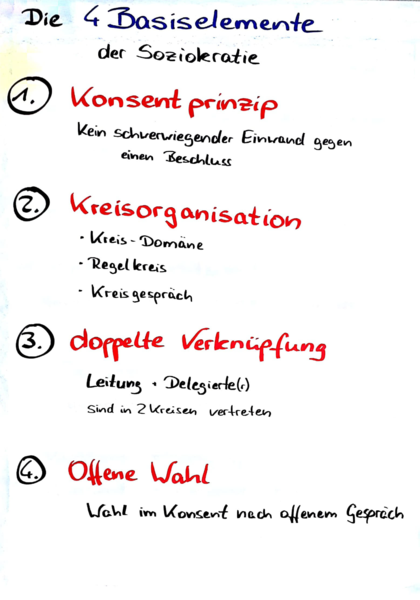 Die 4 Basiselemente
der Soziokratie
1. Konsentprinzip
Kein schwerwiegender Einwand gegen
einen Beschluss
2. Kreisorganisation
· Kreis-Domäne
· Regelkreis
· Kreisgespräch
3. doppelte Verknüpfung
Leitung + Delegierte(r)
sind in 2 Kreisen vertreten
4. Offene Wahl
Wahl im Konsent nach offenem Gespräch